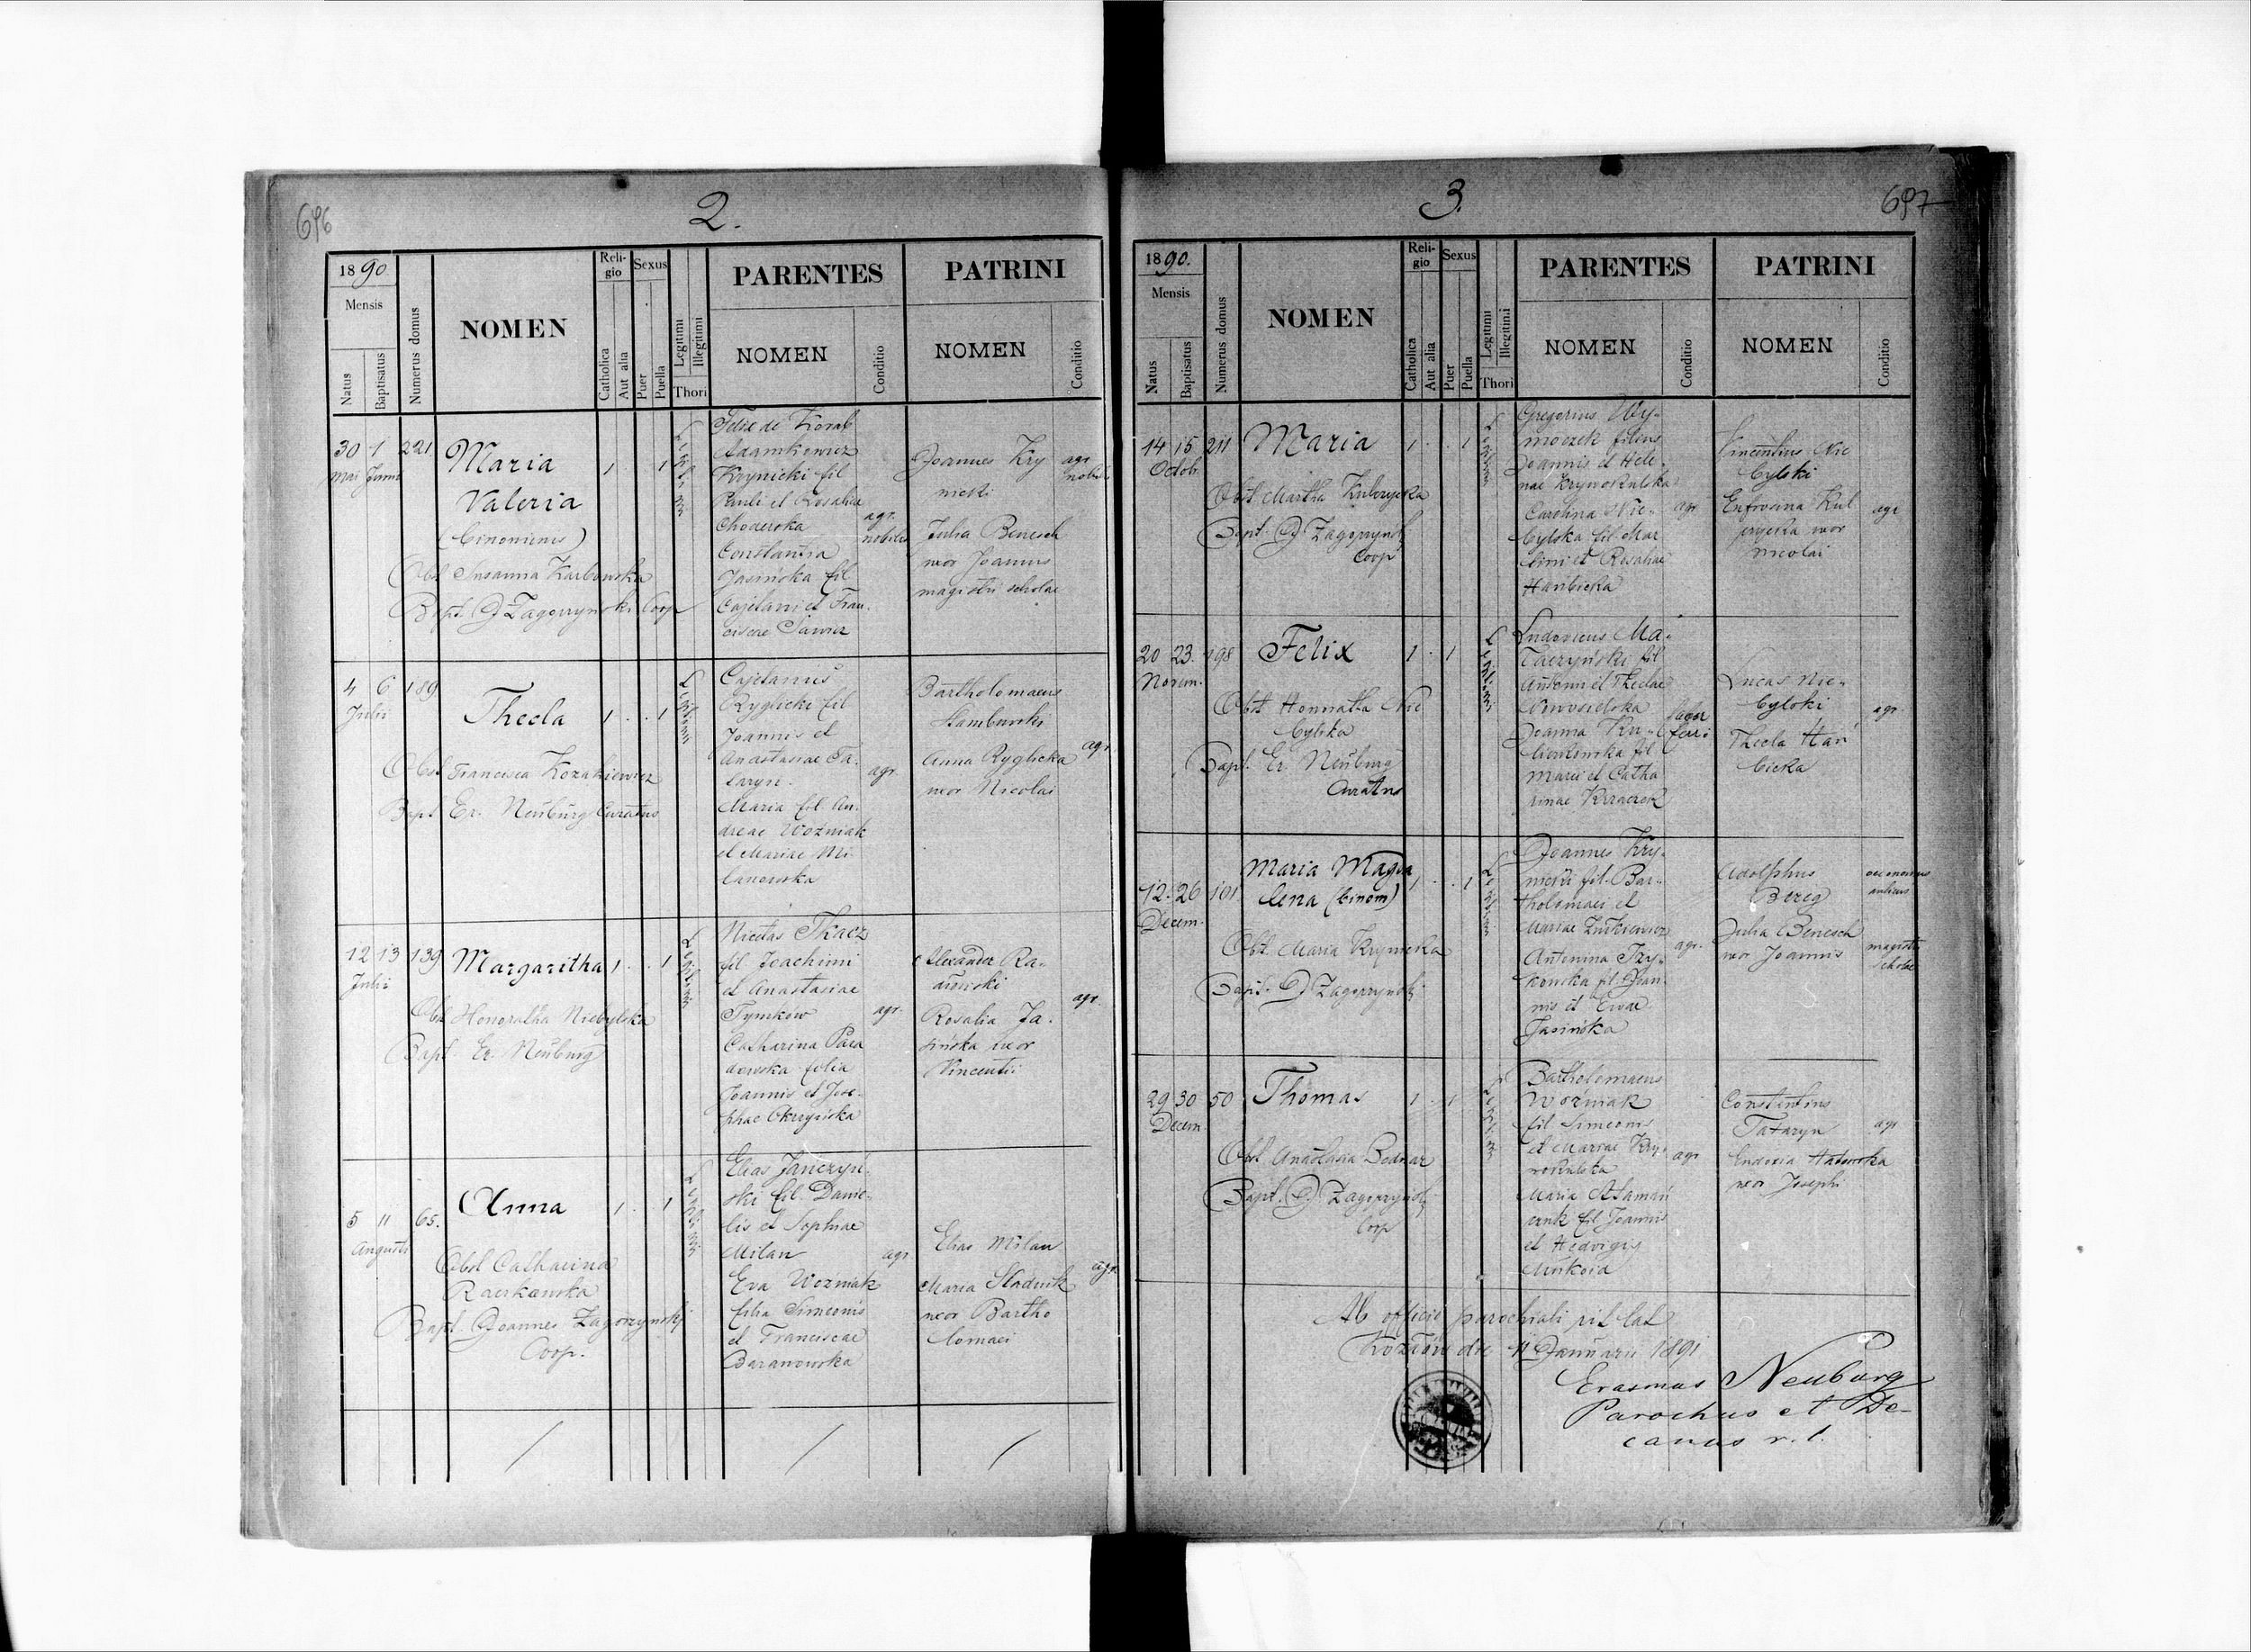 696
2.
1890
Mensis
Natus
Baptisatus
Numerus domus
NOMEN
Religio
Catholica
Aut alia
Sexus
Puer
Puella
Legitimi
Illegitimi
Thori
PARENTES
NOMEN
Conditio
PATRINI
NOMEN
Conditio
30 1 221
Mai Junii
Maria
Valeria
(binominis)
1 1
Obst Susanna Karbowska
Bapt. J Zagorzynski Coop
Felix de Korab
Adamkiewicz
Krynicki fil
Pauli et Rosaliae
Constantia
Jasińska fil
Cajetani et Fran-
ciscae
agr.
nobiles
Joannes Kry
nicki
Julia Benesch
uxor Joannis
magistri scholae
agr
4 6 189
Julii
Thecla
1 . . 1
Obst Francisca Kozakiewicz
Bapt Er. Neuburg Curatus
Cajetanus
Ryglicki fil
Joannis et
Anastasiae Ta-
taryn.
Maria fil An-
dreae Woźniak
et Mariae Mi-
agr.
Bartholomaeus
Anna Ryglicka
uxor Nicolai
agr.
12 13 139
Julii
Margaritha
1 . . 1
Obst Honoratha Niebylska
Bapt Er. Neuburg
Nicetas Tkacz
fil Joachimi
et Anastasiae
Tymków
Catharina
filia
Joannis et Jose-
phae
agr.
Alexander Ra-
Rosalia Ja-
sińska uxor
Vincentii
agr.
5 11 65.
Augusti
Anna
1 . . 1
Obst Catharina
Raczkowska
Bapt. Joannes Zagorzynski
Coop.
Elias Janczyń-
ski fil. Danie-
lis et Sophiae
Milan
Eva Wozniak
filia Simeonis
et Franciscae
Baranowska
agr
Elias Milan
Maria Sładnik
uxor Bartho
lomaei
agr.
3.
697
1890.
Mensis
Natus
Baptisatus
Numerus domus
NOMEN
Religio
Catholica
Aut alia
Sexus
Puer
Puella
Legitimi
Illegitimi
Thori
PARENTES
NOMEN
Conditio
PATRINI
NOMEN
Conditio
14 15 211
Octob.
Maria
1 . . 1
Obst Martha
Bapt. J Zagorzynski
Coop
Gregorius Wy-
moczek filius
Joannis et Hele-
nae Krywokulska
Carolina Nie-
bylska fil Mar
tini et Rosaliae
Hanbicka
agr
Vincentius Nie
bylski
Eufrosina Kul
czycka uxor
Nicolai
agr
20 23. 198
Novem.
Felix
1 . 1
Obst Honoratha Nie
bylska
Bapt. Er. Neuburg
Curatus
Ludovicus Ma-
Antonii et Theclae
Nowosielska
Joanna
Marci et Catha
rinae
faber
ferri
Lucas Nie-
bylski
Thecla Han
bicka
agr
12. 26 191
Decem.
Maria Magda
lena (binom)
1 . . 1
Obst Maria Krynicka
Bapt. J Zagorzynski
Joannes Kry-
nicki fil. Bar-
tholomaei et
Mariae
Antonina Trzy-
fil Joan-
nis et Evae
Jasińska
agr.
Adolphus
Bereg
Julia Benesch
uxor Joannis
magistri
scholae
29 30 50
Decem
Thomas
1 . 1
Obst Anastasia Bednar
Bapt. J. Zagorzynski
Coop
Bartholomaeus
Woźniak
fil Simeonis
et Mariae Kry-
wokulska
Maria Ataman
czuk fil Joannis
et Hedvigis
agr
Constantinus
Tataryn
Eudoxia
uxor Josephi
agr
Ab officio parochiali rit lat
Kozłów die 11 Januarii 1891
Erasmus Neuburg
Parochus et De-
canus r. l.